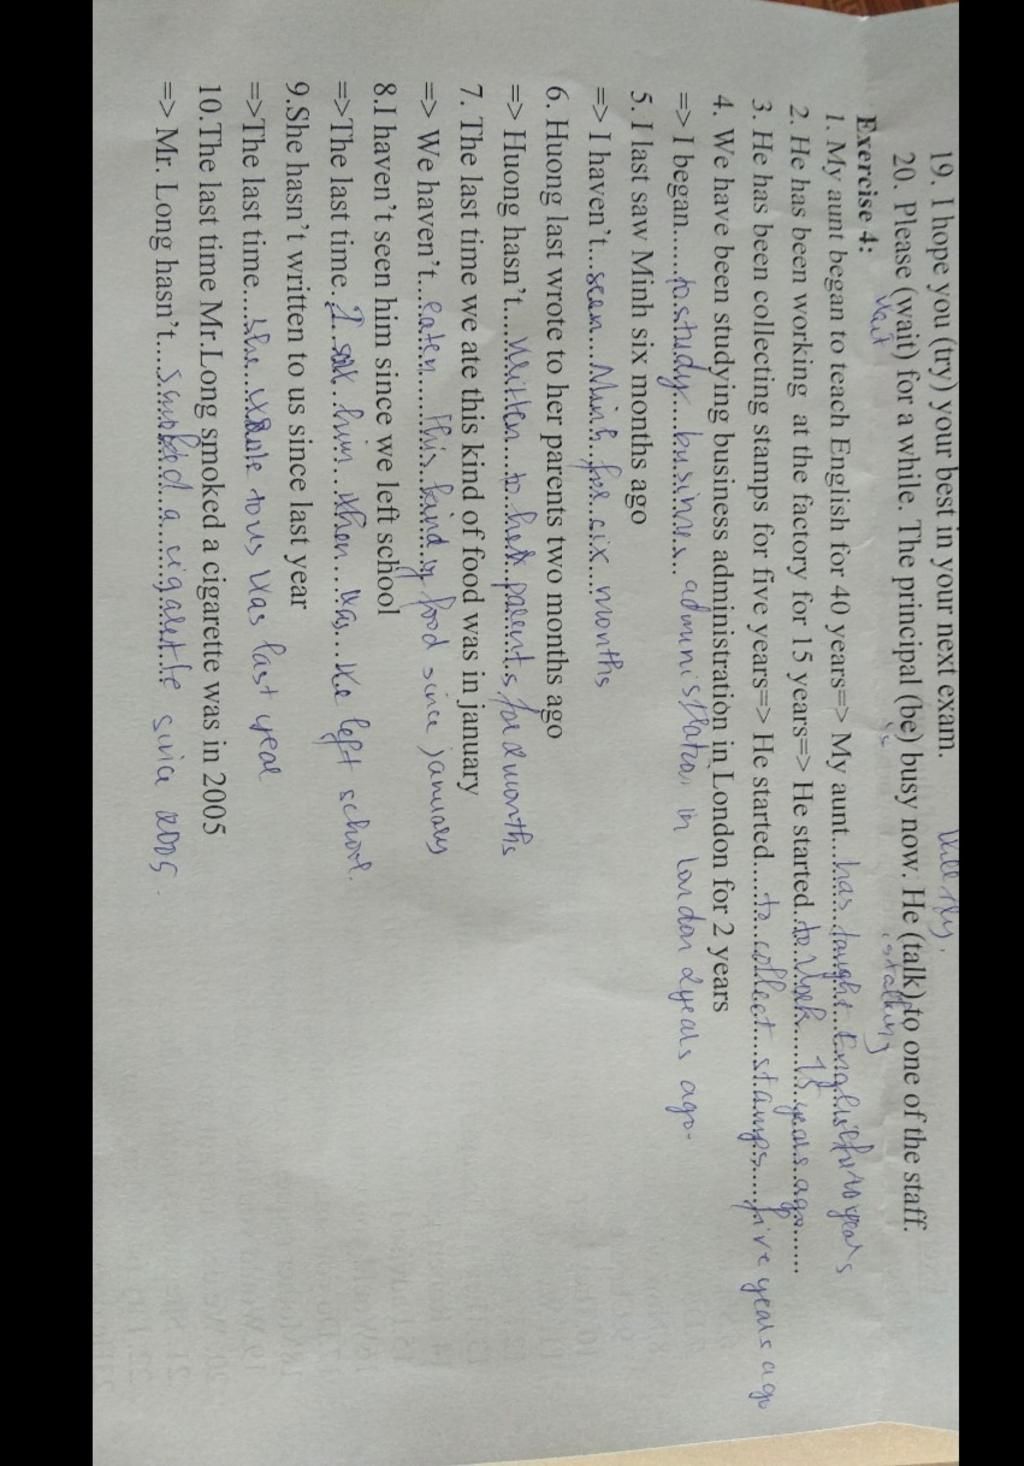 19. I hope you (try) your best in your next exam.
will try.
20. Please (wait) for a while. The principal (be) busy now. He (talk) to one of the staff.
wait is is talking
Exercise 4:
1. My aunt began to teach English for 40 years=> My aunt...has taught English for 40 years
2. He has been working at the factory for 15 years=> He started..to work......15 years ago......
3. He has been collecting stamps for five years=> He started......to collect stamps......five years ago
4. We have been studying business administration in London for 2 years
=> I began......to study...business... in London 2 years ago.
5. I last saw Minh six months ago
=> I haven't...seen...Minh...for six months
6. Huong last wrote to her parents two months ago
=> Huong hasn't......written...to her parents for 2 months
7. The last time we ate this kind of food was in january
=> We haven't...eaten......this kind of food since january
8.I haven't seen him since we left school
=>The last time. I him...when...was...we left school.
9.She hasn't written to us since last year
=>The last time....she wrote to us was last year
10.The last time Mr.Long smoked a cigarette was in 2005
=> Mr. Long hasn't....smoked a cigarette since 2005.